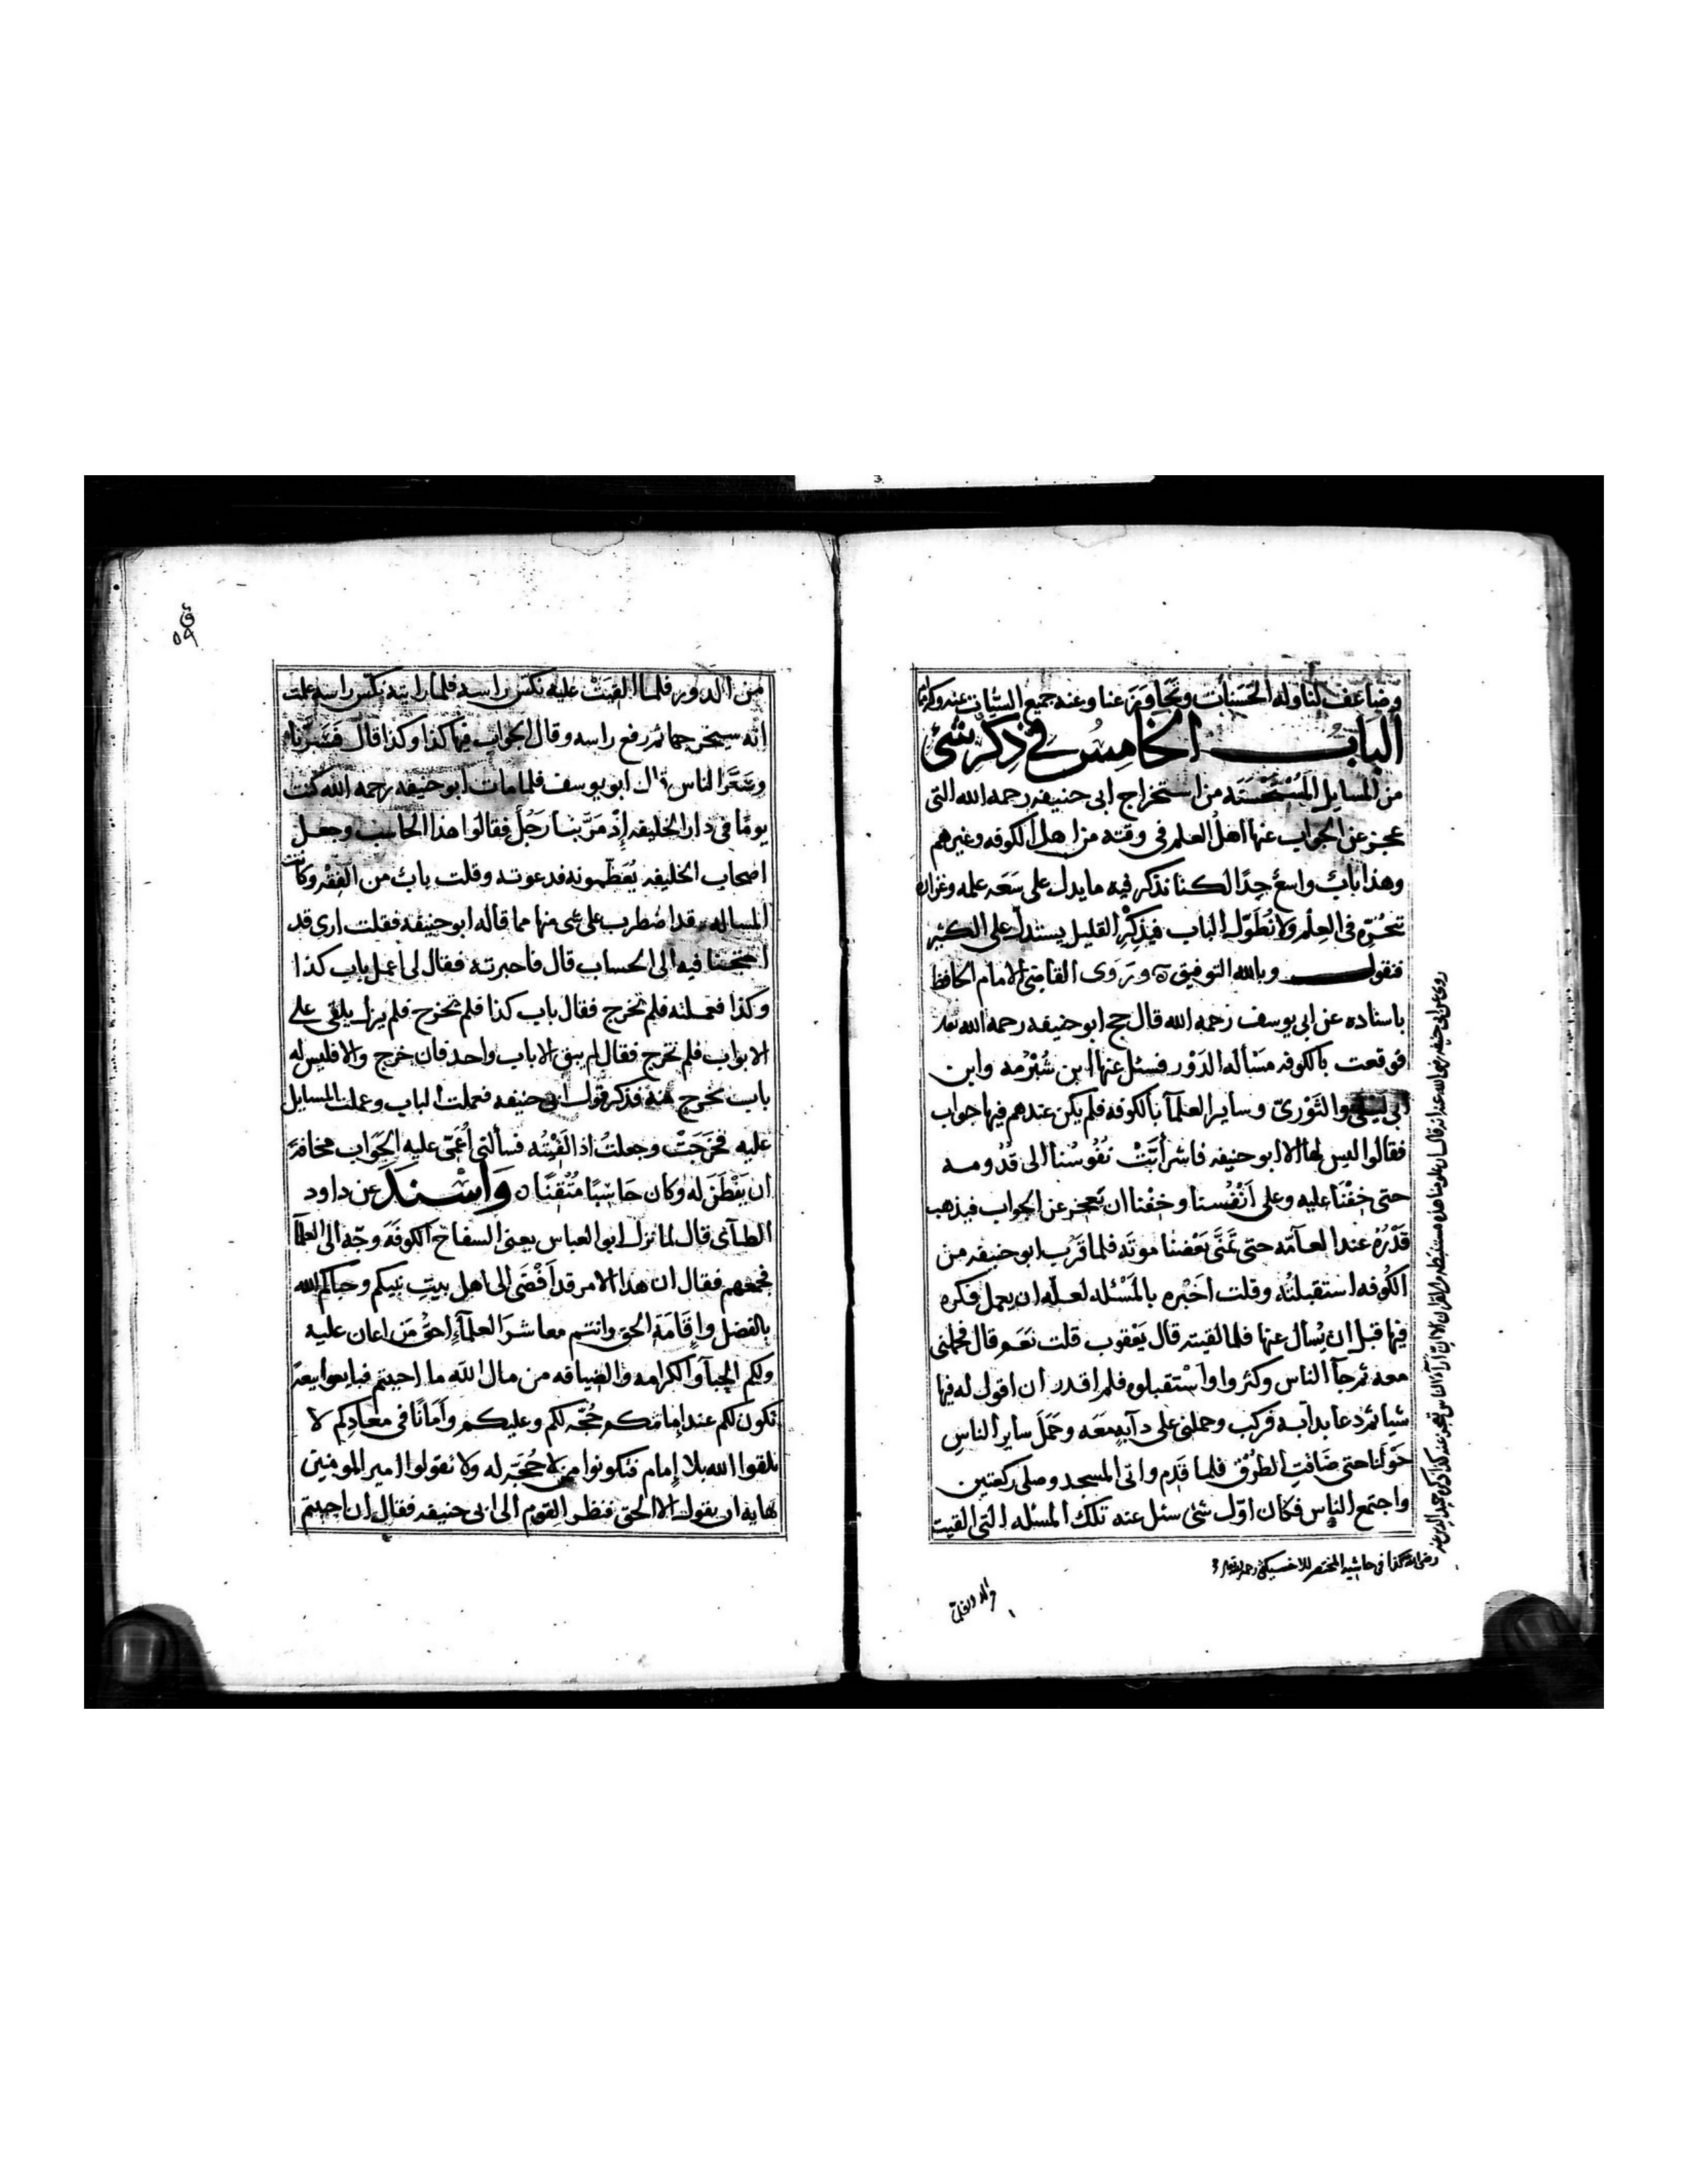 وضاعف لنا وله الحسنات وتجاوز عنا وعنه جميع السيات عنه وكرمه
الباب الخامس في ذكر شئ
من المسايل المستحسنه من استخراج ابى حنيفه رحمه الله التى
عجز عن الجواب عنها اهل العلم فى وقته من اهل الكوفه وغيرهم
وهذا باب واسع جدا لكنا نذكر فيه ما يدل على سعه علمه وغزاره
تبحره فى العلم ولا نطول الباب فبذكر القليل يستدل على الكثير
فنقول وبالله التوفيق ه وروى القاضى الامام الحافظ
باسناده عن ابى يوسف رحمه الله قال حج ابو حنيفه رحمه الله
فوقعت بالكوفه مسأله الدور فسئل عنها ابن شبرمه وابن
ابى ليلى والثورى وساير العلمآ بالكوفه فلم يكن عندهم فيها جواب
فقالوا ليس لها الا ابو حنيفه فاشرأبت نفوسنا الى قدومه
حتى خفنا عليه وعلى انفسنا وخفنا ان يعجز عن الجواب فيذهب
قدره عند العآمه حتى تمنى بعضنا موته فلما قرب ابو حنيفه من
الكوفه استقبلته وقلت اخبره بالمسئله لعله ان يعمل فكره
فيها قبل ان يسأل عنها فلما لقيته قال يعقوب قلت نعم قال فحملنى
معه ثم جآ الناس وكثروا واستقبلوه فلم اقدر ان اقول له فيها
شيا ثم دعا بدابه فركب وحملنى على دآبه معه وحمل ساير الناس
حولنا حتى ضاقت الطرق فلما قدم واتى المسجد وصلى ركعتين
واجتمع الناس فكان اول شئ سئل عنه تلك المسئله التى القيت
رضى الله كذا فى حاشيه المختصر للاخسيكثى رحمه الله
من الدور فلما القيت عليه نكس راسه فلما رايته نكس راسه علمت
انه سيخرجها ثم رفع راسه وقال الجواب فيها كذا وكذا قال فسرنا
وسر الناس قال ابو يوسف فلما مات ابو حنيفه رحمه الله كنت
يوما فى دار الخليفه إذ مر بنا رجل فقالوا هذا الحاسب وجعل
اصحاب الخليفه يعظمونه فدعوته وقلت باب من الفقه وكانت
المساله قد اضطرب على شى منها مما قاله ابو حنيفه فقلت ارى قد
احتجنا فيه الى الحساب قال فاخبرته فقال لى اعمل باب كذا
وكذا فعملته فلم تخرج فقال باب كذا فلم تخرج فلم يزل يلقى على
الابواب فلم تخرج فقال لم يبق الا باب واحد فان خرج والا فليس له
باب تخرج منه فذكر قول ابى حنيفه فعملت الباب وعملت المسايل
عليه فخرجت وجعلت اذا لقيته فسألنى أعمى عليه الجواب مخافة
ان يفطن له وكان حاسبا متقنا ه وأسند عن داود
الطآى قال لما نزل ابو العباس يعنى السفاح الكوفه وجه الى العلمآ
فجمعهم فقال ان هذا الامر قد افضى الى اهل بيت نبيكم وحباكم الله
بالفضل وإقامة الحق وانتم معاشر العلمآء احق من اعان عليه
ولكم الحبآ والكرامه والضيافه من مال الله ما احببتم فبايعوا بيعة
تكون لكم عند إمامكم حجه لكم وعليكم وامانا فى معادكم لا
تلقوا الله بلا إمام فتكونوا ممن لا حجة له ولا تقولوا امير المومنين
هابه ان يقول الا الحق فنظر القوم الى ابى حنيفه فقال ان احببتم